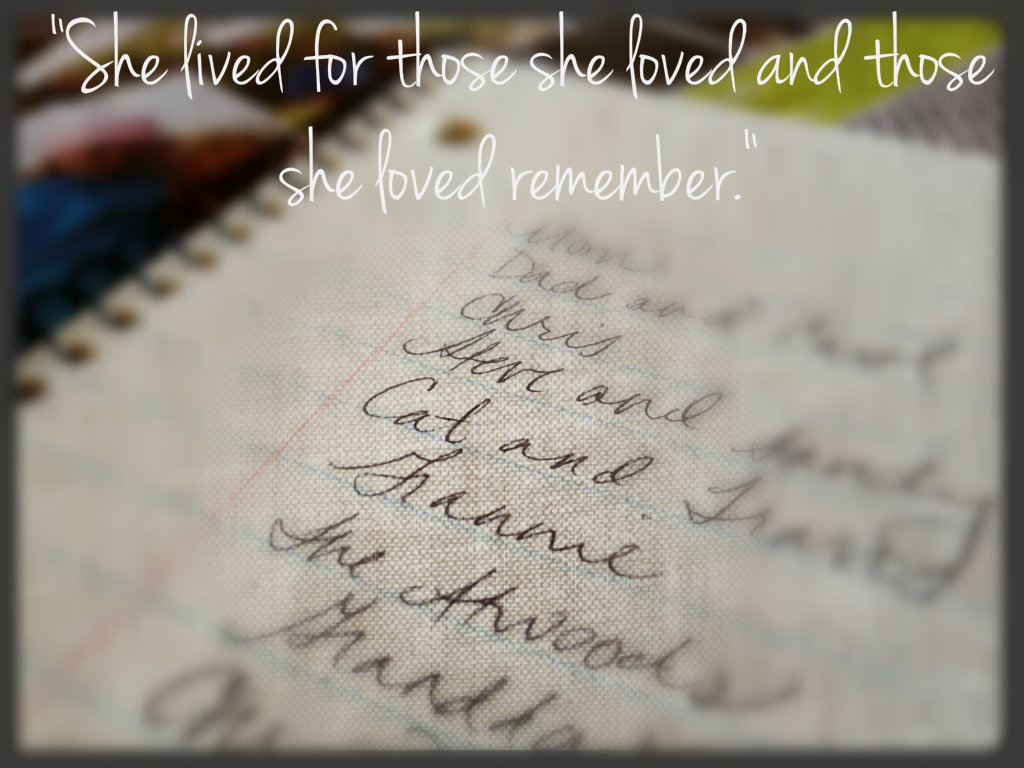 "She lived for those she loved and those
she loved remember."
Mom
Dad and
Chris
Steve and Sandy
Cat and
Grannie
The Atwoods